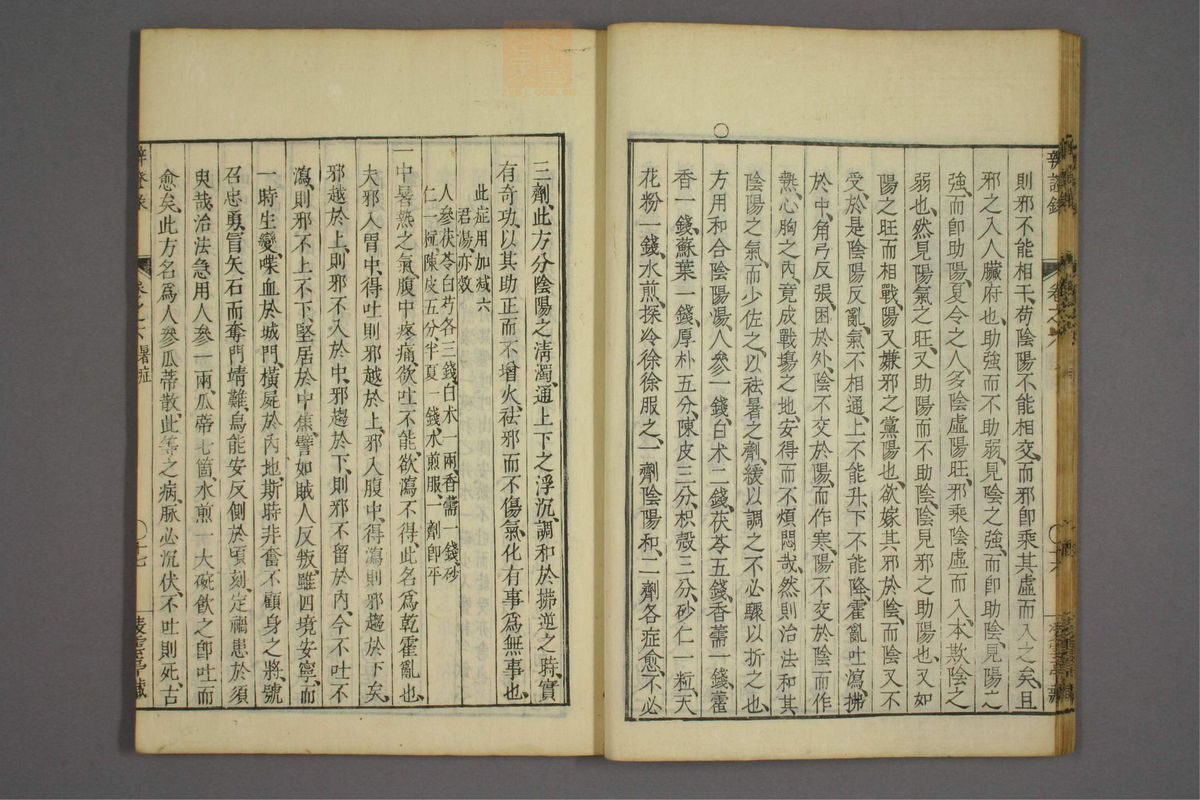 則邪不能相干、苟陰陽不能相交、而邪卽乘其虛而入之矣、且
邪之入人臟府也、助強而不助弱、見陰之強、而卽助陰、見陽之
強、而卽助陽、夏令之人、多陰虛陽旺、邪乘陰虛而入、本欺陰之
弱也、然見陽氣之旺、又助陽而不助陰、陰見邪之助陽也、又如
陽之旺而相戰、陽又嫌邪之黨陽也、欲嫁其邪於陰、而陰又不
受、於是陰陽反亂、氣不相通、上不能升、下不能降、霍亂吐瀉、拂
於中、角弓反張、困於外、陰不交於陽、而作寒、陽不交於陰而作
熱、心胸之內、竟成戰場之地、安得而不煩悶哉、然則治法和其
陰陽之氣、而少佐之、以祛暑之劑、緩以調之、不必驟以折之也、
○方用和合陰陽湯、人參一錢、白朮二錢、茯苓五錢、香薷一錢、藿
香一錢、蘇葉一錢、厚朴五分、陳皮三分、枳殼三分、砂仁一粒、天
花粉一錢、水煎、探冷徐徐服之、一劑陰陽和、二劑各症愈、不必
三劑、此方分陰陽之淸濁、通上下之浮沉、調和於拂逆之時、實
有奇功、以其助正而不增火、祛邪而不傷氣、化有事爲無事也、
此症用加減六
君湯、亦效
人參茯苓白芍各三錢、白朮一兩、香薷一錢、砂
仁一粒、陳皮五分、半夏一錢、水煎服、一劑卽平
一中暑熱之氣、腹中疼痛、欲吐不能、欲瀉不得、此名爲乾霍亂也、
夫邪入胃中、得吐則邪越於上、邪入腹中、得瀉則邪趨於下矣、
邪越於上、則邪不入於中、邪趨於下、則邪不留於內、今不吐不
瀉、則邪不上不下、堅居於中焦、譬如賊人反叛、雖四境安寧、而
一時生變、喋血於城門、橫屍於內地、斯時非奮不顧身之將、號
召忠勇、冒矢石而奪門靖難、烏能安反側於頃刻、定禍患於須
臾哉、治法急用人參一兩、瓜蒂七箇、水煎一大碗、飲之卽吐而
愈矣、此方名爲人參瓜蒂散、此等之病、脈必沉伏、不吐則死、古
卷之六 暑症